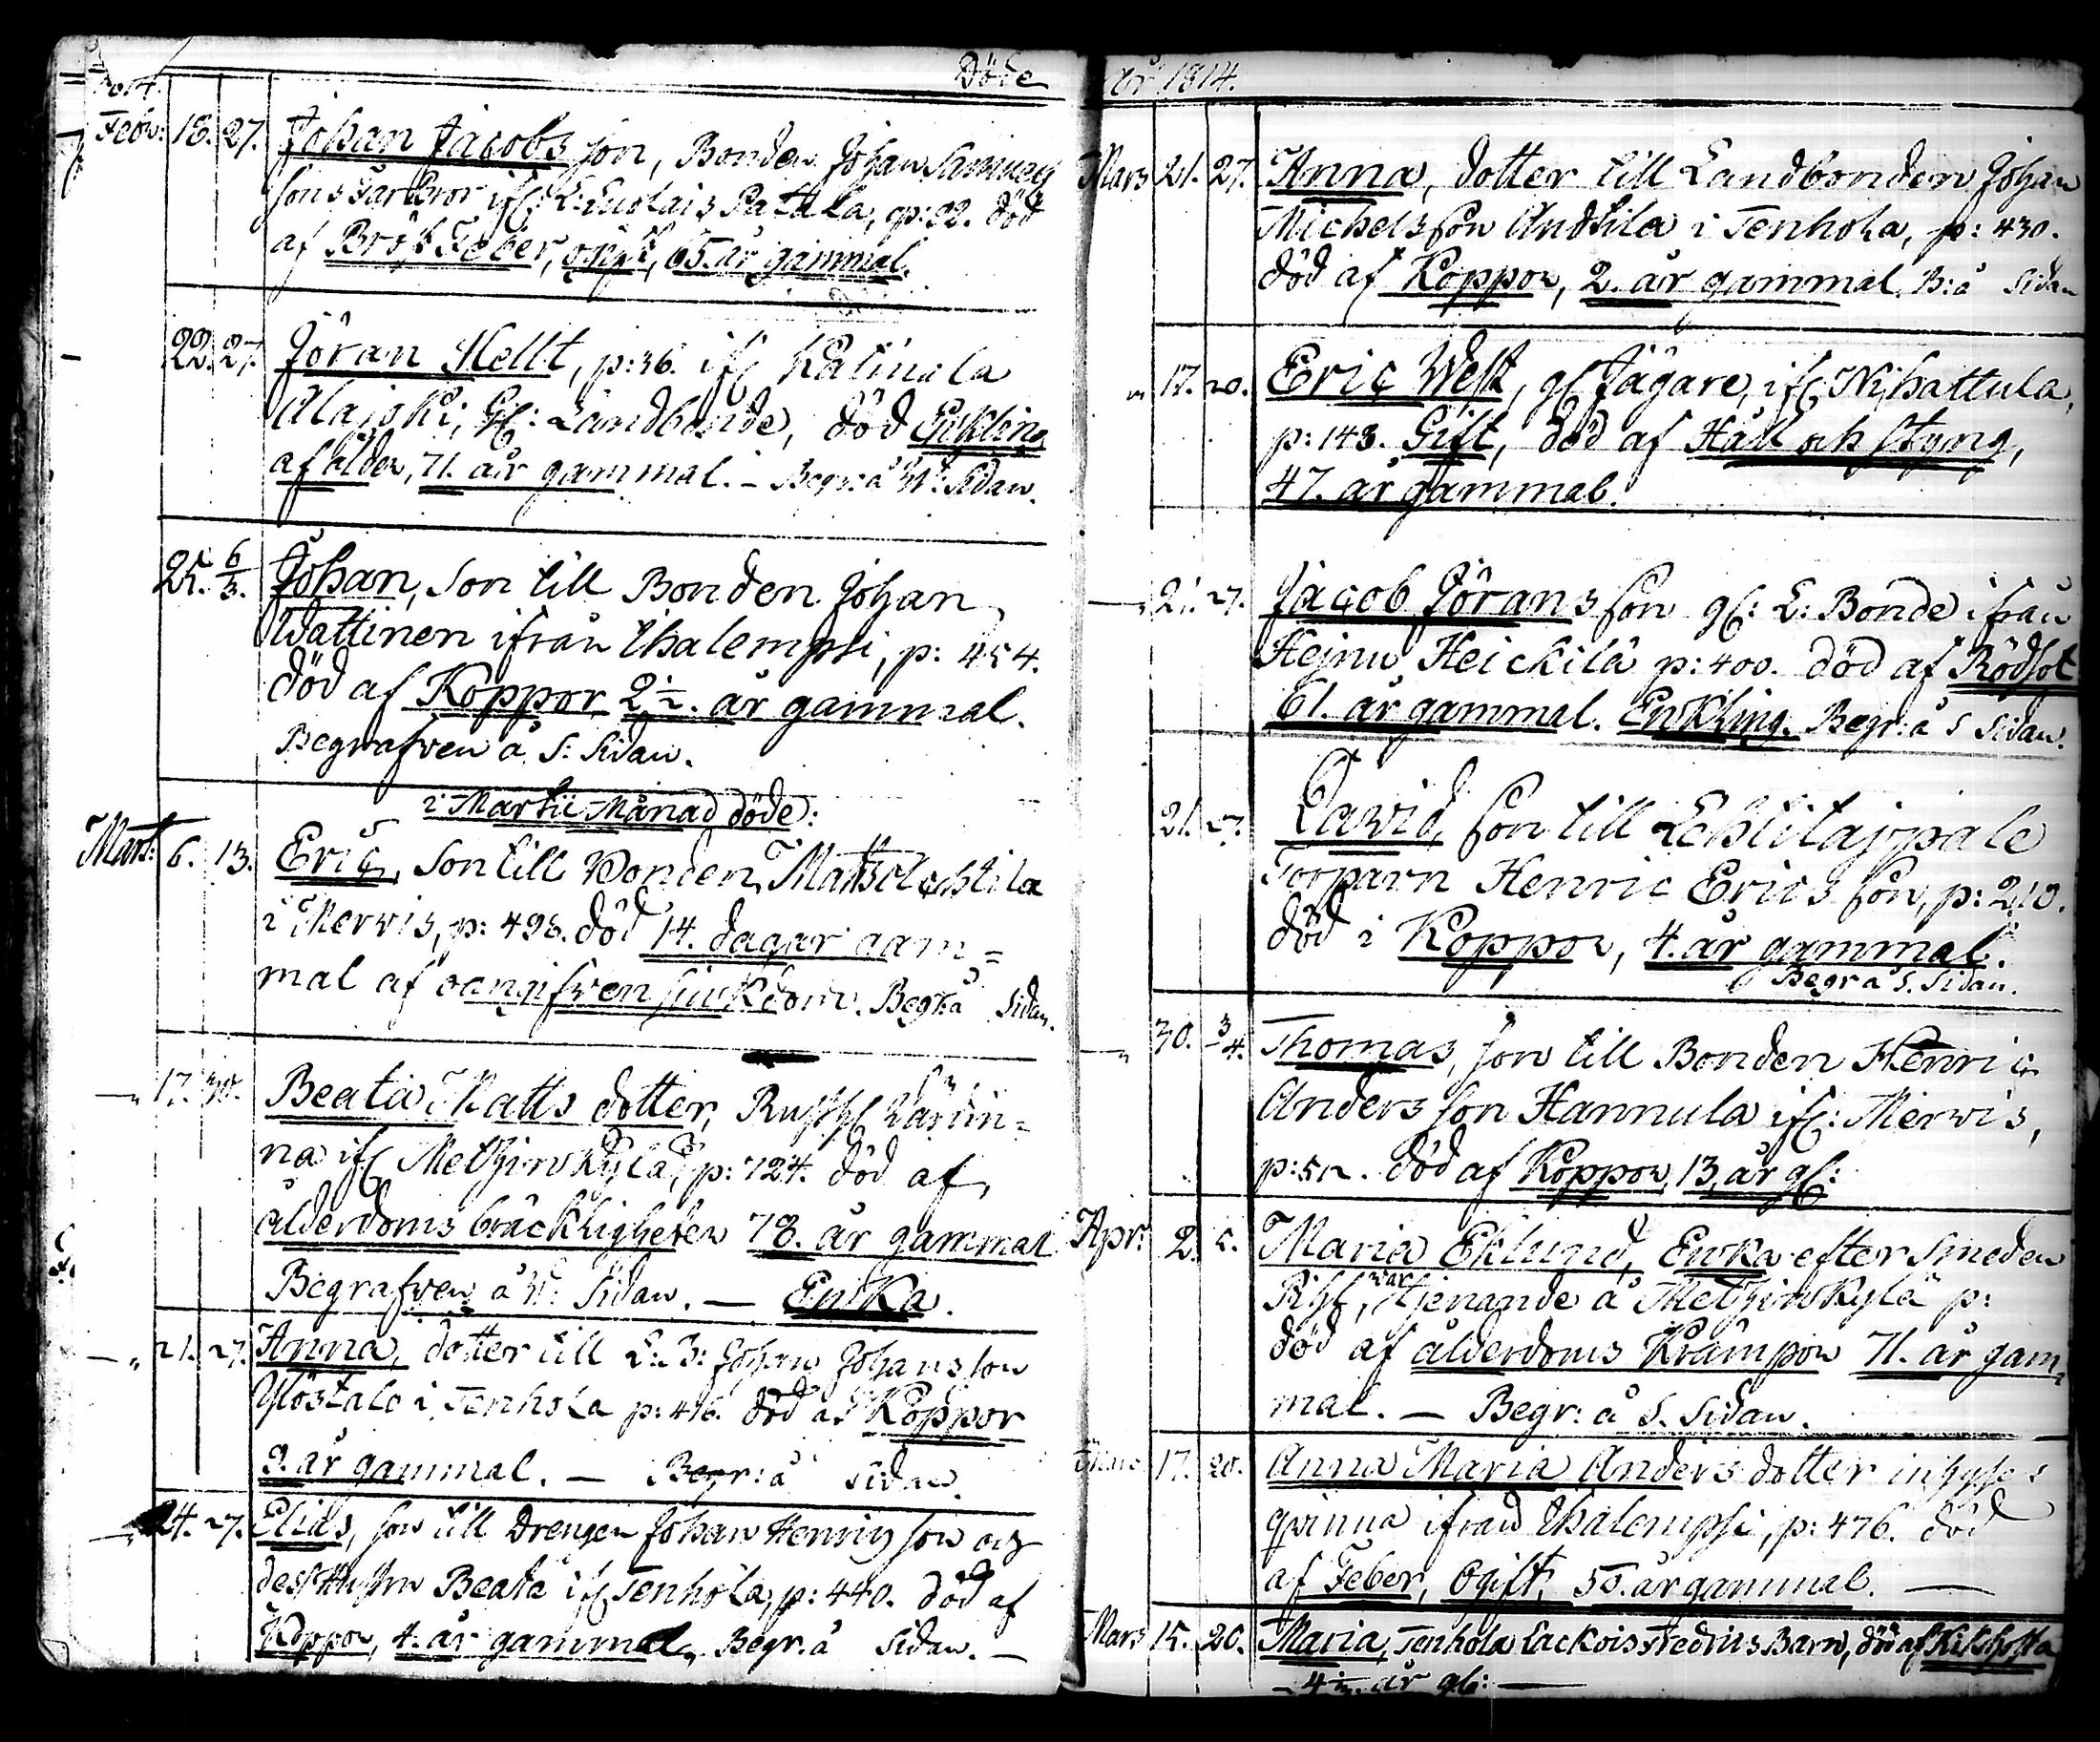 Döde
år 1814.
1814.
Febr: 18. 27. Johan Jacobs son, Bonden Johan Samuels
sons Farbror ifr: Patala, p: 92. död
af Bröst Feber, ogift, 65. år gammal.
22. 27. Jöran Hellt, p: 36. ifr Katinala
Alajski, gl: Landbonde, död Enkling
af ålder, 71. år gammal. - Begr: å N: Sidan.
25. 6/3. Johan, Son till Bonden Johan
Wattinen ifrån Ihalempsi, p: 454.
död af Koppor 2 1/2. år gammal.
Begrafven å S: Sidan.
i Martii Månad döde:
Mart: 6. 13. Eric, Son till Bonden Matts
i Mervis, p: 498. död 14. dagar gam=
mal af oangifven siukdom. Begr: å Sidan.
17. Beata Matts dotter, Värdin=
na ifr Metzinkylä, p: 724. död af
ålderdoms bräckligheten 78. år gammal
Begrafven å N: Sidan. — Enka.
21. 27. Anna, dotter till L: B: Johan Johansson
Ylöstalo i Tenhola p: 416. död af Koppor
3. år gammal. — Begr: å Sidan.
24. 27. Elias, son till Drengen Johan Henricsson och
dess Hustru Beata ifr Tenhola, p: 440. död af
Koppor, 4. år gammal, Begr: å Sidan. —
Mars 21. 27. Anna, dotter till Landbonden Johan
Michelsson Andtila i Tenhola, p: 430.
död af Koppor, 2. år gammal. B: å Sidan
" 17. 20. Eric West, gl Jägare, ifr N: hattula,
p: 143. Gift, död af Håll och styng,
47. år gammal.
21. 27. Jacob Jörans son gl: L: Bonde ifrån
Hejnu Heickilä p: 400. död af Rödsot
61. år gammal. Enkling. Begr: å S Sidan.
21. 27. David, son till Lehtilajpale
Torparn Henric Ericsson, p: 210.
död i Koppor, 4. år gammal.
Begr å S. Sidan.
30. 3/4. Thomas, son till Bonden Henric
Anders son Hannula ifr: Mervis,
död af Koppor, 13 år gl:
Apr: 2. Maria Eklund, Enka efter Smeden
war tjenande å Metzinkylä p:
död af ålderdoms Krämpor 71. år gam=
mal. — Begr: å S. Sidan.
17. 20. Anna Maria Anders dotter inhyses
qvinna ifrån Ihalempsi, p: 476. död
af Feber, Ogift, 50. år gammal. —
Mars 15. 20. Maria, Tenhola Lackois Fredrics Barn, död af Kikhosta
4 1/2. år gl: —